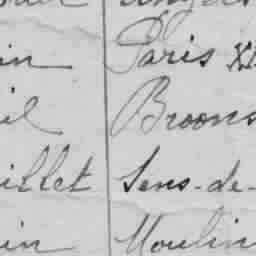 in Paris XI
il Broons
illet Sens-de-
in Moulin